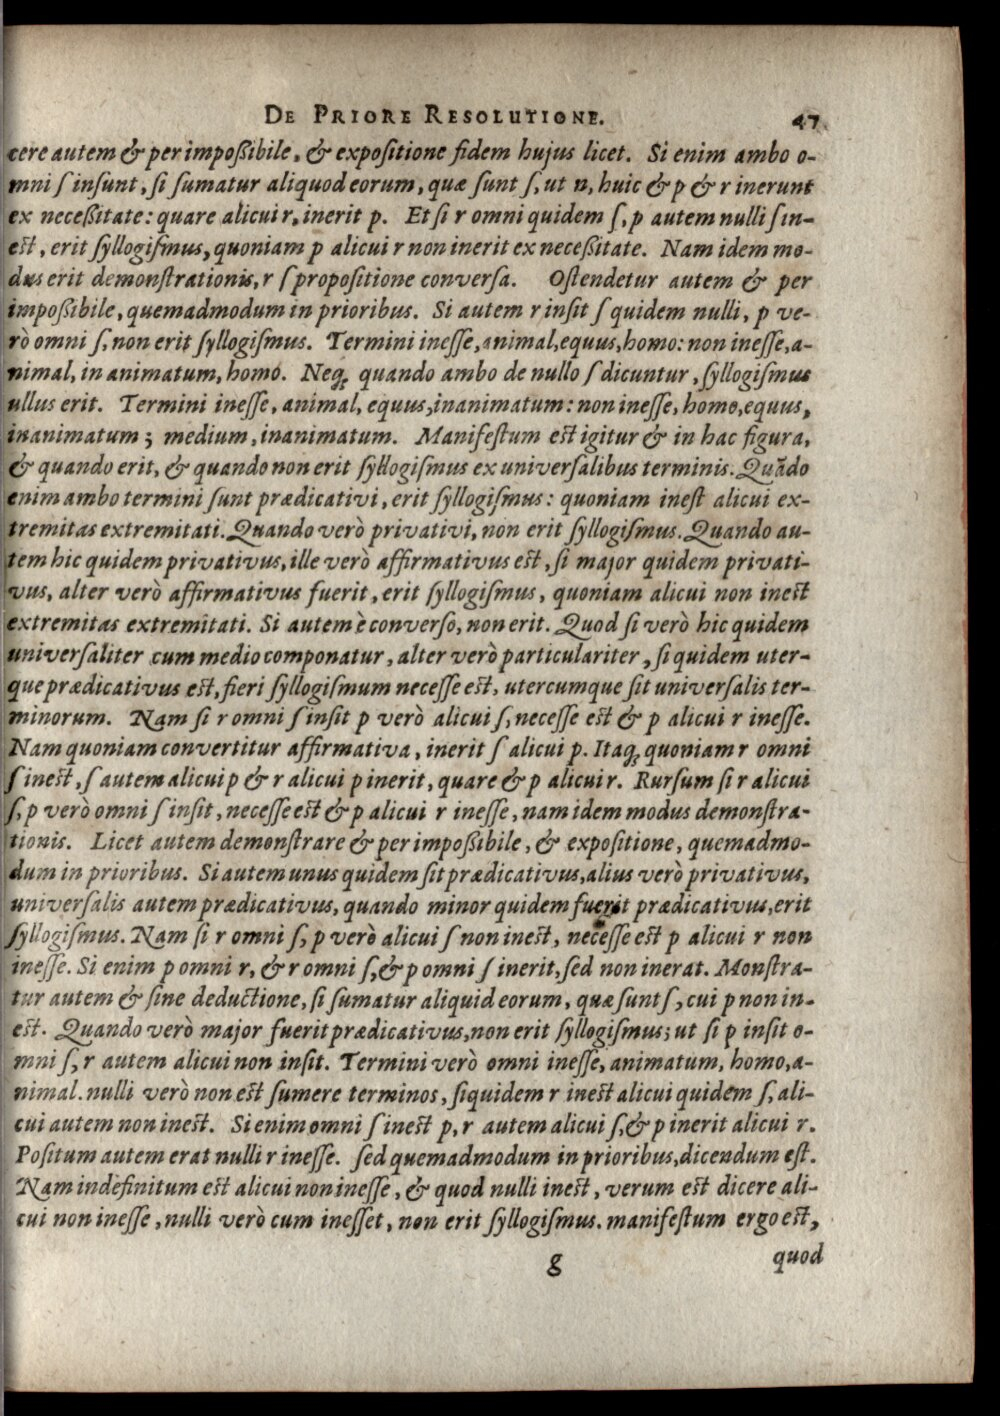 DE PRIORE RESOLUTIONE. 47
cere autem & per impoßibile, & expositione fidem hujus licet. Si enim ambo o-
mni ſ inſunt, ſi ſumatur aliquod eorum, quæ ſunt ſ, ut n, huic & p & r inerunt
ex neceßitate: quare alicui r, inerit p. Et ſi r omni quidem ſ, p autem nulli ſin-
eſt, erit ſyllogiſmus, quoniam p alicui r non inerit ex neceßitate. Nam idem mo-
dus erit demonſtrationis, r ſ propoſitione converſa. Oſtendetur autem & per
impoßibile, quemadmodum in prioribus. Si autem r inſit ſ quidem nulli, p ve-
rò omni ſ, non erit ſyllogiſmus. Termini ineſſe, animal, equus, homo: non ineſſe, a-
nimal, in animatum, homo. Neq; quando ambo de nullo ſ dicuntur, ſyllogiſmus
ullus erit. Termini ineſſe, animal, equus, inanimatum: non ineſſe, homo, equus,
inanimatum; medium, inanimatum. Manifeſtum eſt igitur & in hac figura,
& quando erit, & quando non erit ſyllogiſmus ex univerſalibus terminis. Quãdo
enim ambo termini ſunt prædicativi, erit ſyllogiſmus: quoniam ineſt alicui ex-
tremitas extremitati. Quando verò privativi, non erit ſyllogiſmus. Quando au-
tem hic quidem privativus, ille verò affirmativus eſt, ſi major quidem privati-
vus, alter verò affirmativus fuerit, erit ſyllogiſmus, quoniam alicui non ineſt
extremitas extremitati. Si autem è converſo, non erit. Quod ſi verò hic quidem
univerſaliter cum medio componatur, alter verò particulariter, ſi quidem uter-
que prædicativus eſt, fieri ſyllogiſmum neceſſe eſt, utercumque ſit univerſalis ter-
minorum. Nam ſi r omni ſ inſit p verò alicui ſ, neceſſe eſt & p alicui r ineſſe.
Nam quoniam convertitur affirmativa, inerit ſ alicui p. Itaq; quoniam r omni
ſ ineſt, ſ autem alicui p & r alicui p inerit, quare & p alicui r. Rurſum ſi r alicui
ſ, p verò omni ſ inſit, neceſſe eſt & p alicui r ineſſe, nam idem modus demonſtra-
tionis. Licet autem demonſtrare & per impoßibile, & expoſitione, quemadmo-
dum in prioribus. Si autem unus quidem ſit prædicativus, alius verò privativus,
univerſalis autem prædicativus, quando minor quidem fuerit prædicativus, erit
ſyllogiſmus. Nam ſi r omni ſ, p verò alicui ſ non ineſt, neceſſe eſt p alicui r non
ineſſe. Si enim p omni r, & r omni ſ, & p omni ſ inerit, ſed non inerat. Monſtra-
tur autem & ſine deductione, ſi ſumatur aliquid eorum, quæ ſunt ſ, cui p non in-
eſt. Quando verò major fuerit prædicativus, non erit ſyllogiſmus; ut ſi p inſit o-
mni ſ, r autem alicui non inſit. Termini verò omni ineſſe, animatum, homo, a-
nimal. nulli verò non eſt ſumere terminos, ſiquidem r ineſt alicui quidem ſ, ali-
cui autem non ineſt. Si enim omni ſ ineſt p, r autem alicui ſ, & p inerit alicui r.
Poſitum autem erat nulli r ineſſe. ſed quemadmodum in prioribus, dicendum eſt.
Nam indefinitum eſt alicui non ineſſe, & quod nulli ineſt, verum eſt dicere ali-
cui non ineſſe, nulli verò cum ineſſet, non erit ſyllogiſmus. manifeſtum ergo eſt,
g quod